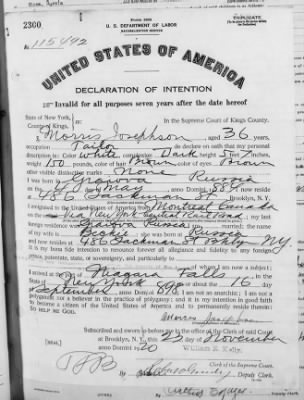 2300
Form 2203
U. S. DEPARTMENT OF LABOR
NATURALIZATION SERVICE
DUPLICATE
No. 115492
UNITED STATES OF AMERICA
DECLARATION OF INTENTION
Invalid for all purposes seven years after the date hereof
State of New York,
County of Kings,
In the Supreme Court of Kings County.
I, Morris Josephson, aged 36 years,
occupation Tailor, do declare on oath that my personal
description is: Color white, complexion Dark, height 5 feet 7 inches,
weight 150 pounds, color of hair Brown, color of eyes Brown
other visible distinctive marks None
I was born in Russia
on the day of May, anno Domini 1884; I now reside
at 486 St., Brooklyn, N.Y.
I emigrated to the United States of America from Montreal Canada
on the Via New York Central Rail Road
foreign residence was Russia; I am married; the name
of my wife is Beckie; she was born at Russia
and now resides at 486 St Bklyn N.Y.
It is my bona fide intention to renounce forever all allegiance and fidelity to any foreign
prince, potentate, state, or sovereignty, and particularly to
of whom I am now a subject;
I arrived at the port of Niagara Falls, in the
State of New York, on or about the 16 day
of September, anno Domini; I am not an anarchist; I am not a
polygamist nor a believer in the practice of polygamy; and it is my intention in good faith
to become a citizen of the United States of America and to permanently reside therein:
SO HELP ME GOD.
Morris Josephson
Subscribed and sworn to before me in the office of the Clerk of said Court
at Brooklyn, N. Y., this 23 day of November
anno Domini 1920
William E. Kelly
Clerk of the Supreme Court.
Deputy Clerk.